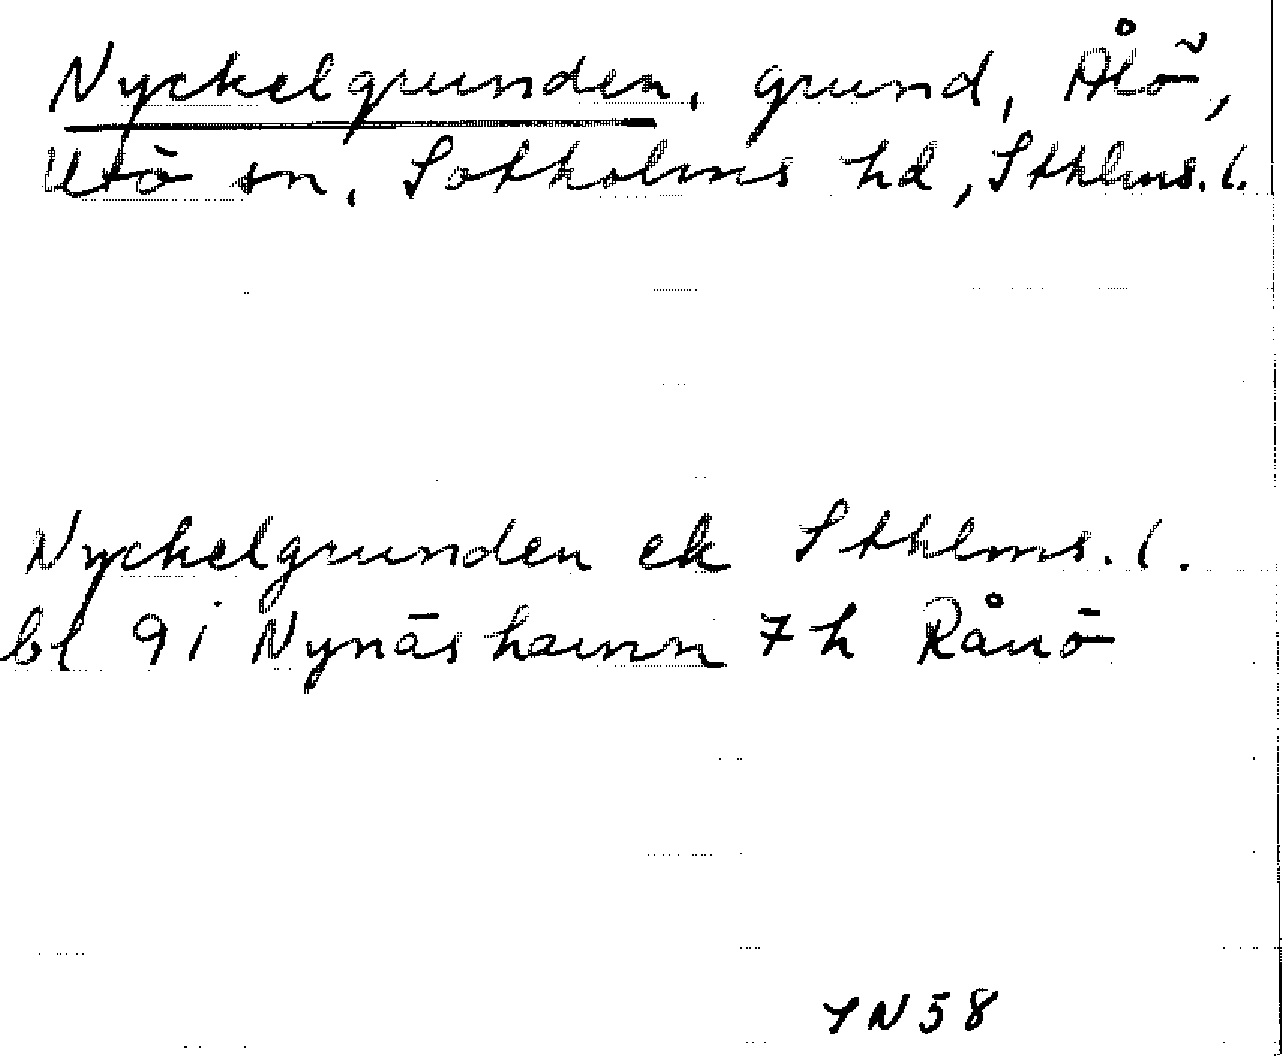 Nyckelgrunden, grund, Ålö,
Utö sn, Sotholms hd, Sthlms. l.
Nyckelgrunden ek Sthlms. l.
bl 9i Nynäshamn 7h Rånö
YN58